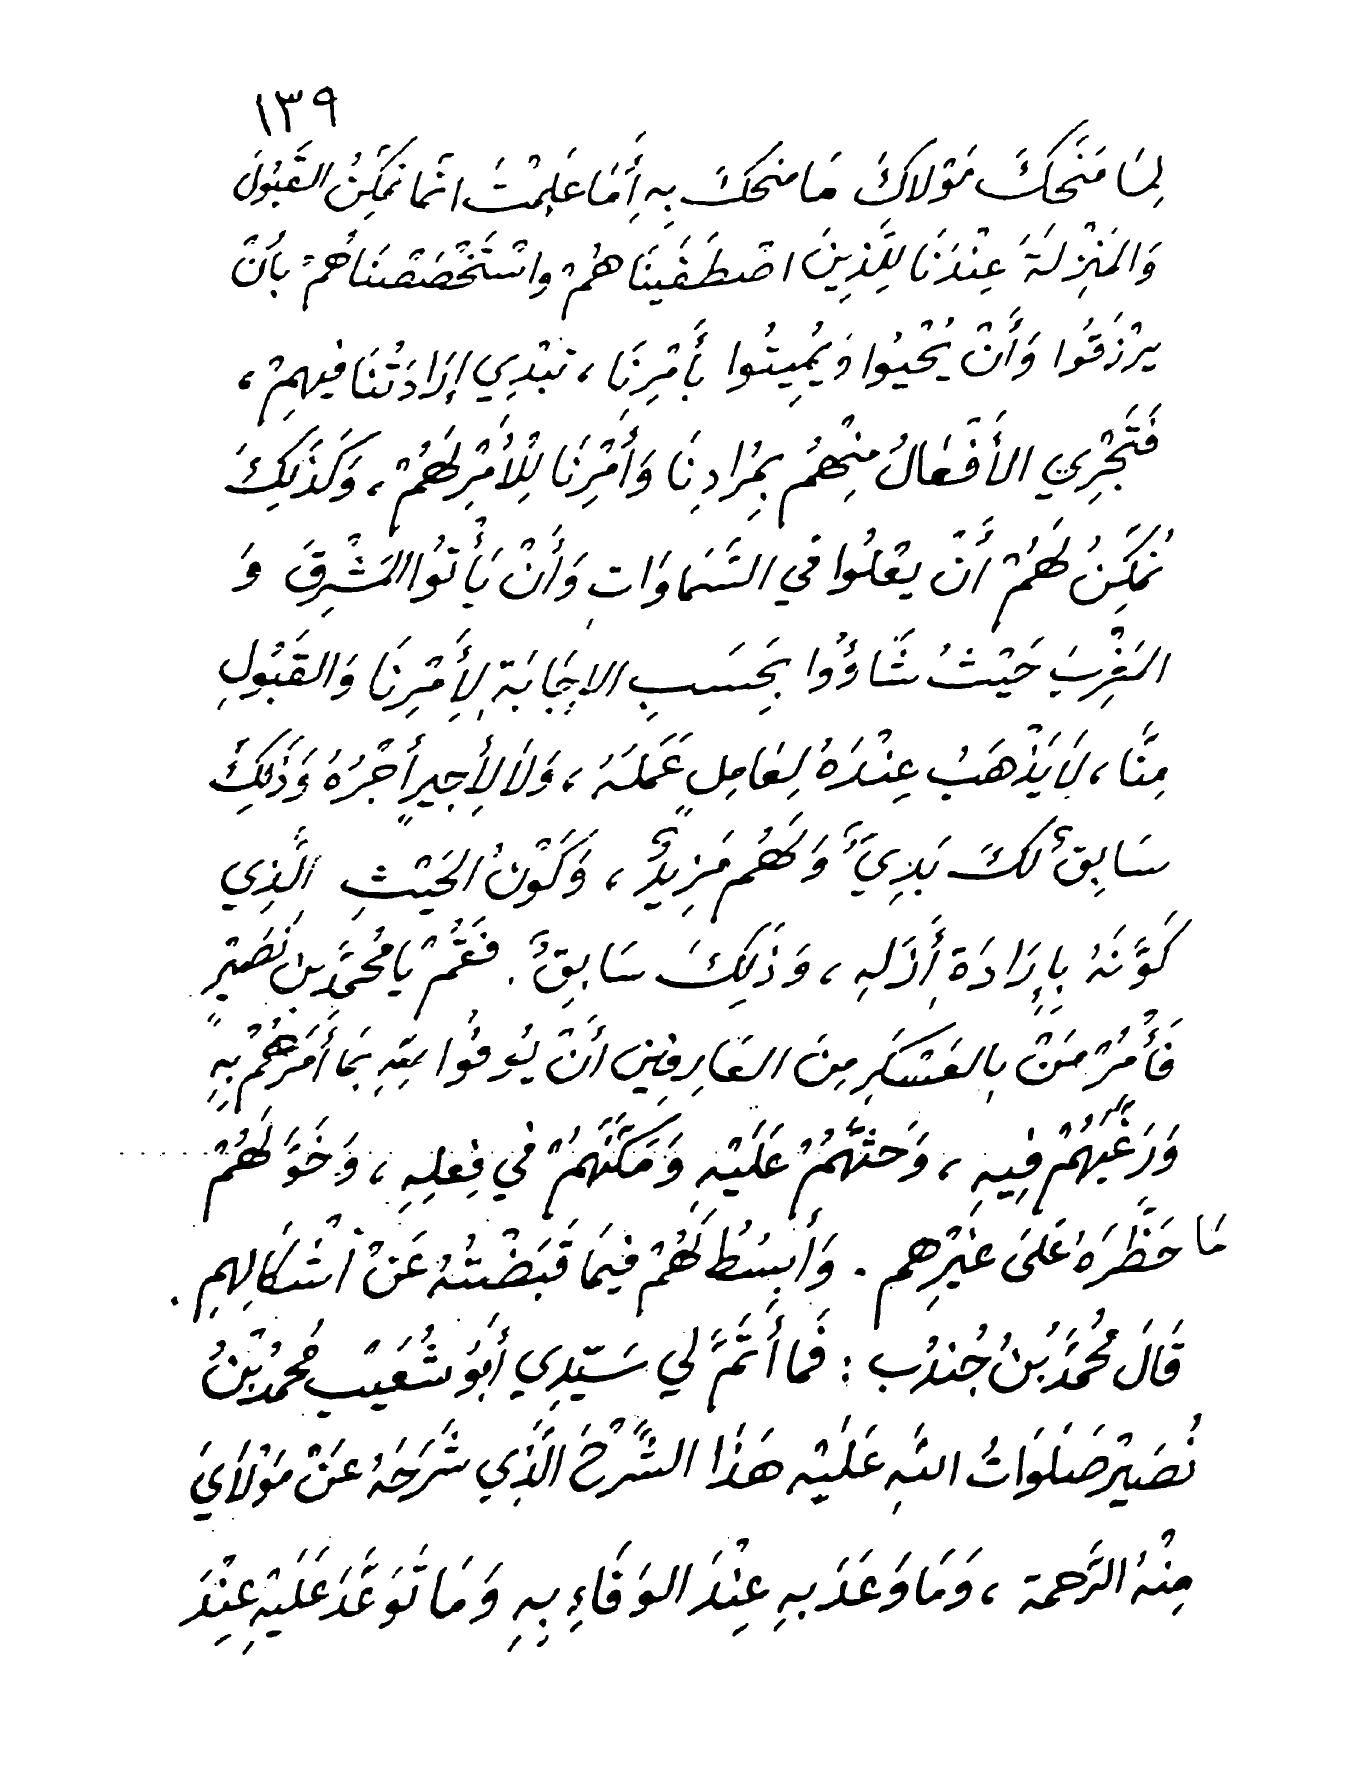 ١٣٩
لِمَا مَنَحَكَ مَوْلَاكَ مَا منحكَ بِهِ أَمَا عَلِمْتَ انَّما نُمَكِّنُ القَبُولَ
وَالمَنْزِلَةَ عِنْدَنَا لِلَّذِينَ اصْطَفَينَاهُمْ وِاسْتَخْصَصْنَاهُمْ بأنْ
يرْزَقُوا وَأَنْ يُحْيُوا وَيُمِيتُوا بأَمْرِنَا ، تبْدِي إرَادَتُنَا فيهِمْ ،
فَتَجْرِي الأَفَعَالُ مِنْهُم بِمُرَادِنَا وَأَمْرِنَا لِلْأمْرِ لَهُمْ ، وَكَذَلِكَ
نُمَكِّنُ لَهُمْ أَنْ يعْلُوا في السَّمَاوَاتِ وَأَنْ يَأْتوُا المَشْرِقَ وَ
المَغْرِبَ حَيْثُ شَاؤُوا بِحَسَبِ الاِجَابَة لِأَمْرِنَا وَالقَبُولِ
مِنَّا ، لَا يَذْهَبُ عِنْدَهُ لِعَامِلٍ عَمَلَهُ ، وَلَا لِأَجيرٍ أَجْرُهُ وَذَلِكَ
سَابِقٌ لَكَ بَدِيَّ وَلَهُم مَزِيدٌ ، وَكَوْنُ الحَيْثِ الَّذِي
كَوَّنَهُ بِإِرَادَة أَزَلِهِ ، وَذَلِكَ سَابِقٌ . فَقُمْ يا مُحمَّد بن نُصَيْرٍ
فَأْمُرْ مَنْ بِالعَسْكَرِ مِنَ العَارِفِينَ أَنْ يُوفُوا للهِ بمَا أَمَرَهُمْ بِهِ
وَرَغَّبَهُمْ فِيهِ ، وَحَثَّهُمْ عَلَيْهِ وَمَكَّنَهُمْ في فِعلِهِ ، وَخَوَّلَهُمْ
مَا حَظَّرَهُ عَلَى غَيْرِهِم . وَأبسُطُ لَهُمْ فيمَا قَبَضْتُهُ عَنْ أشْكَالِهِمِ .
قَالَ مُحُمَّدُ بُنُ جُندُب : فَما أَتَمَّ لي سَيّدِي أَبُو شُعَيْبٍ مُحمدُ بْنُ
نُصَيْرْ صَلَوَاتُ اللهِ عَلَيْهِ هَذَا الشَّرْحَ الَّذِي شَرَحَهُ عَنْ مَوْلَايَ
مِنْهُ الرَّحمة ، وَمَا وَعَدَ بهِ عِنْدَ الوَفَاءِ بِهِ وَمَا تَوَعَّدَ عَلَيْهِ عِنْدَ